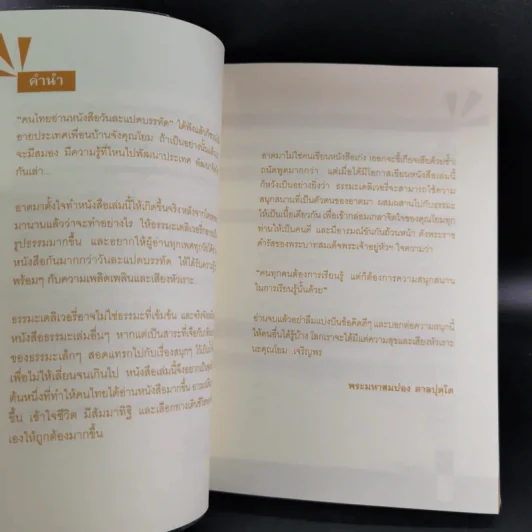 คำนำ
"คนไทยอ่านหนังสือวันละแปดบรรทัด" ได้ฟังแล้วก็
อายประเทศเพื่อนบ้านจังคุณโยม ถ้าเป็นอย่างนั้นแล้ว
จะมีสมอง มีความรู้ที่ไหนไปพัฒนาประเทศ พัฒนา
กันเล่า...
อาตมาตั้งใจทำหนังสือเล่มนี้ให้เกิดขึ้นจริง หลังจาก
มานานแล้วว่าจะทำอย่างไร ให้ธรรมะเดลิเวอรี่
รูปธรรมมากขึ้น และอยากให้ผู้อ่านทุกเพศทุกวัย
หนังสือกันมากกว่าวันละแปดบรรทัด ให้ได้
พร้อมๆ กับความเพลิดเพลินและเสียงหัวเราะ
ธรรมะเดลิเวอรี่อาจไม่ใช่ธรรมะที่เข้มข้น และจริงจัง
หนังสือธรรมะเล่มอื่นๆ หากแต่เป็นสาระที่เจือ
ของธรรมะเล็กๆ สอดแทรกไปกับเรื่องสนุกๆ
เพื่อไม่ให้เลี่ยนจนเกินไป หนังสือเล่มนี้จึง
ต้นหนึ่งที่ทำให้คนไทยได้อ่านหนังสือมากขึ้น
ขึ้น เข้าใจชีวิต มีสัมมาทิฐิ และเลือกทางเดินชีวิต
เองให้ถูกต้องมากขึ้น
อาตมาไม่ใช่คนเขียนหนังสือเก่ง ออกจะขี้เกียจเสียด้วยซ้ำ
ถนัดพูดมากกว่า แต่เมื่อได้มีโอกาสเขียนหนังสือเล่มนี้
ก็หวังเป็นอย่างยิ่งว่า ธรรมะเดลิเวอรี่จะสามารถใช้ความ
สนุกสนานที่เป็นตัวตนของอาตมา ผสมผสานไปกับธรรมะ
ให้เป็นเนื้อเดียวกัน เพื่อเข้ากล่อมเกลาจิตใจของคุณโยมทุก
ท่านให้เป็นคนดี และมีอารมณ์ขันกันถ้วนหน้า ดังพระราช
ดำรัสของพระบาทสมเด็จพระเจ้าอยู่หัวฯ ใจความว่า
"คนทุกคนต้องการเรียนรู้ แต่ก็ต้องการความสนุกสนาน
ในการเรียนรู้นั้นด้วย"
อ่านจบแล้วอย่าลืมแบ่งปันข้อคิดดีๆ และบอกต่อความสุขนี้
ให้คนอื่นได้รู้บ้าง โลกเราจะได้มีแต่ความสุขและเสียงหัวเราะ
นะคุณโยม เจริญพร
พระมหาสมปอง ตาลปุตฺโต